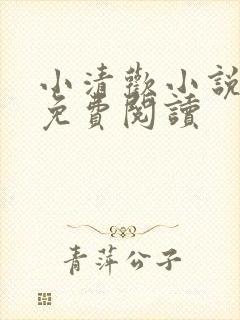 小清歡小說
免費閱讀
青萍公子